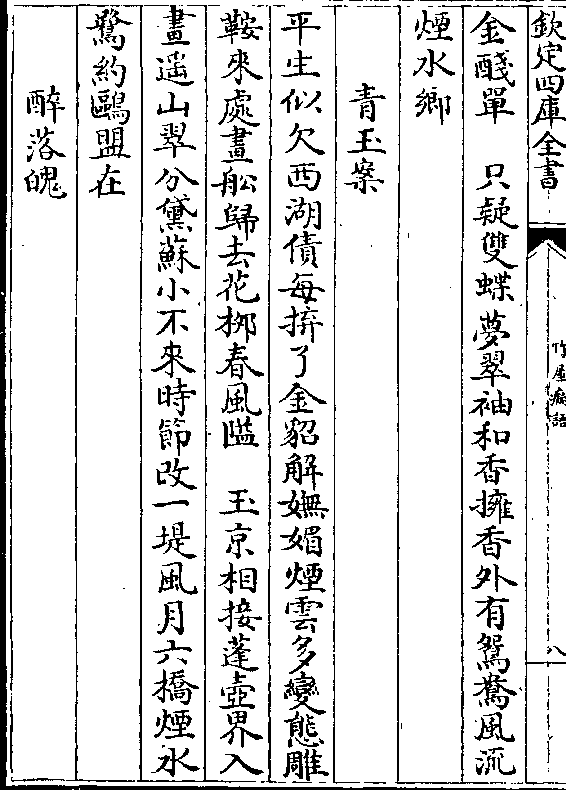 欽定四庫全書
竹屋癡語
八
金醆單　只疑雙蝶夢翠袖和香擁香外有鴛鴦風流
煙水鄉
青玉案
平生似欠西湖債每拚了金貂解嫵媚煙雲多變態雕
鞍來處畫舩歸去花桞春風隘　玉京相接蓬壺界入
畫遥山翠分黛蘇小不來時節改一堤風月六橋煙水
鷺約鷗盟在
醉落魄